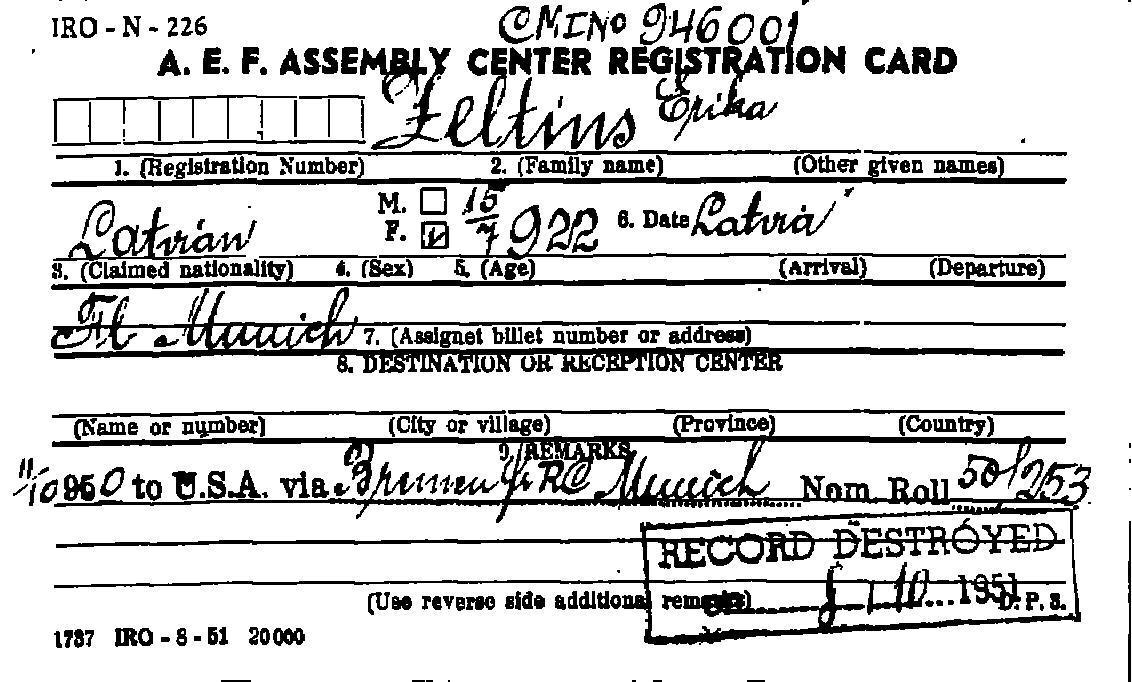 IRO - N - 226
CMINo 946001
A. E. F. ASSEMBLY CENTER REGISTRATION CARD
Zeltins Erika
1. (Registration Number) 2. (Family name) (Other given names)
Latvian M. F. 15/7 922 6. Date Latvia
3. (Claimed nationality) 4. (Sex) 5. (Age) (Arrival) (Departure)
Munich 7. (Assignet billet number or address)
8. DESTINATION OR RECEPTION CENTER
(Name or number) (City or village) (Province) (Country)
9. REMARKS
11/10 950 to U.S.A. via Bremen RC Munich Nom. Roll 50/253
RECORD DESTROYED
10 1951
(Use reverse side additional remarks) D. P. 3.
1737 IRO - 8 - 51 20000